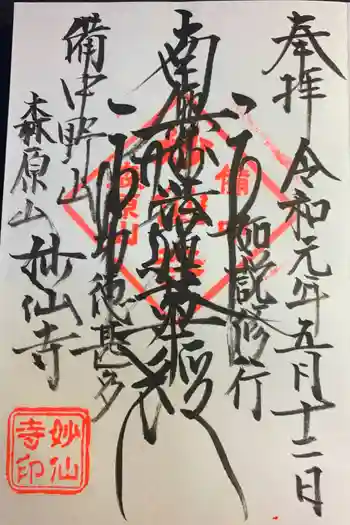 奉拝 令和元年五月十二日
如説修行
南無妙法蓮華経
功徳甚多
備中野山
森原山 妙仙寺
妙仙
寺印